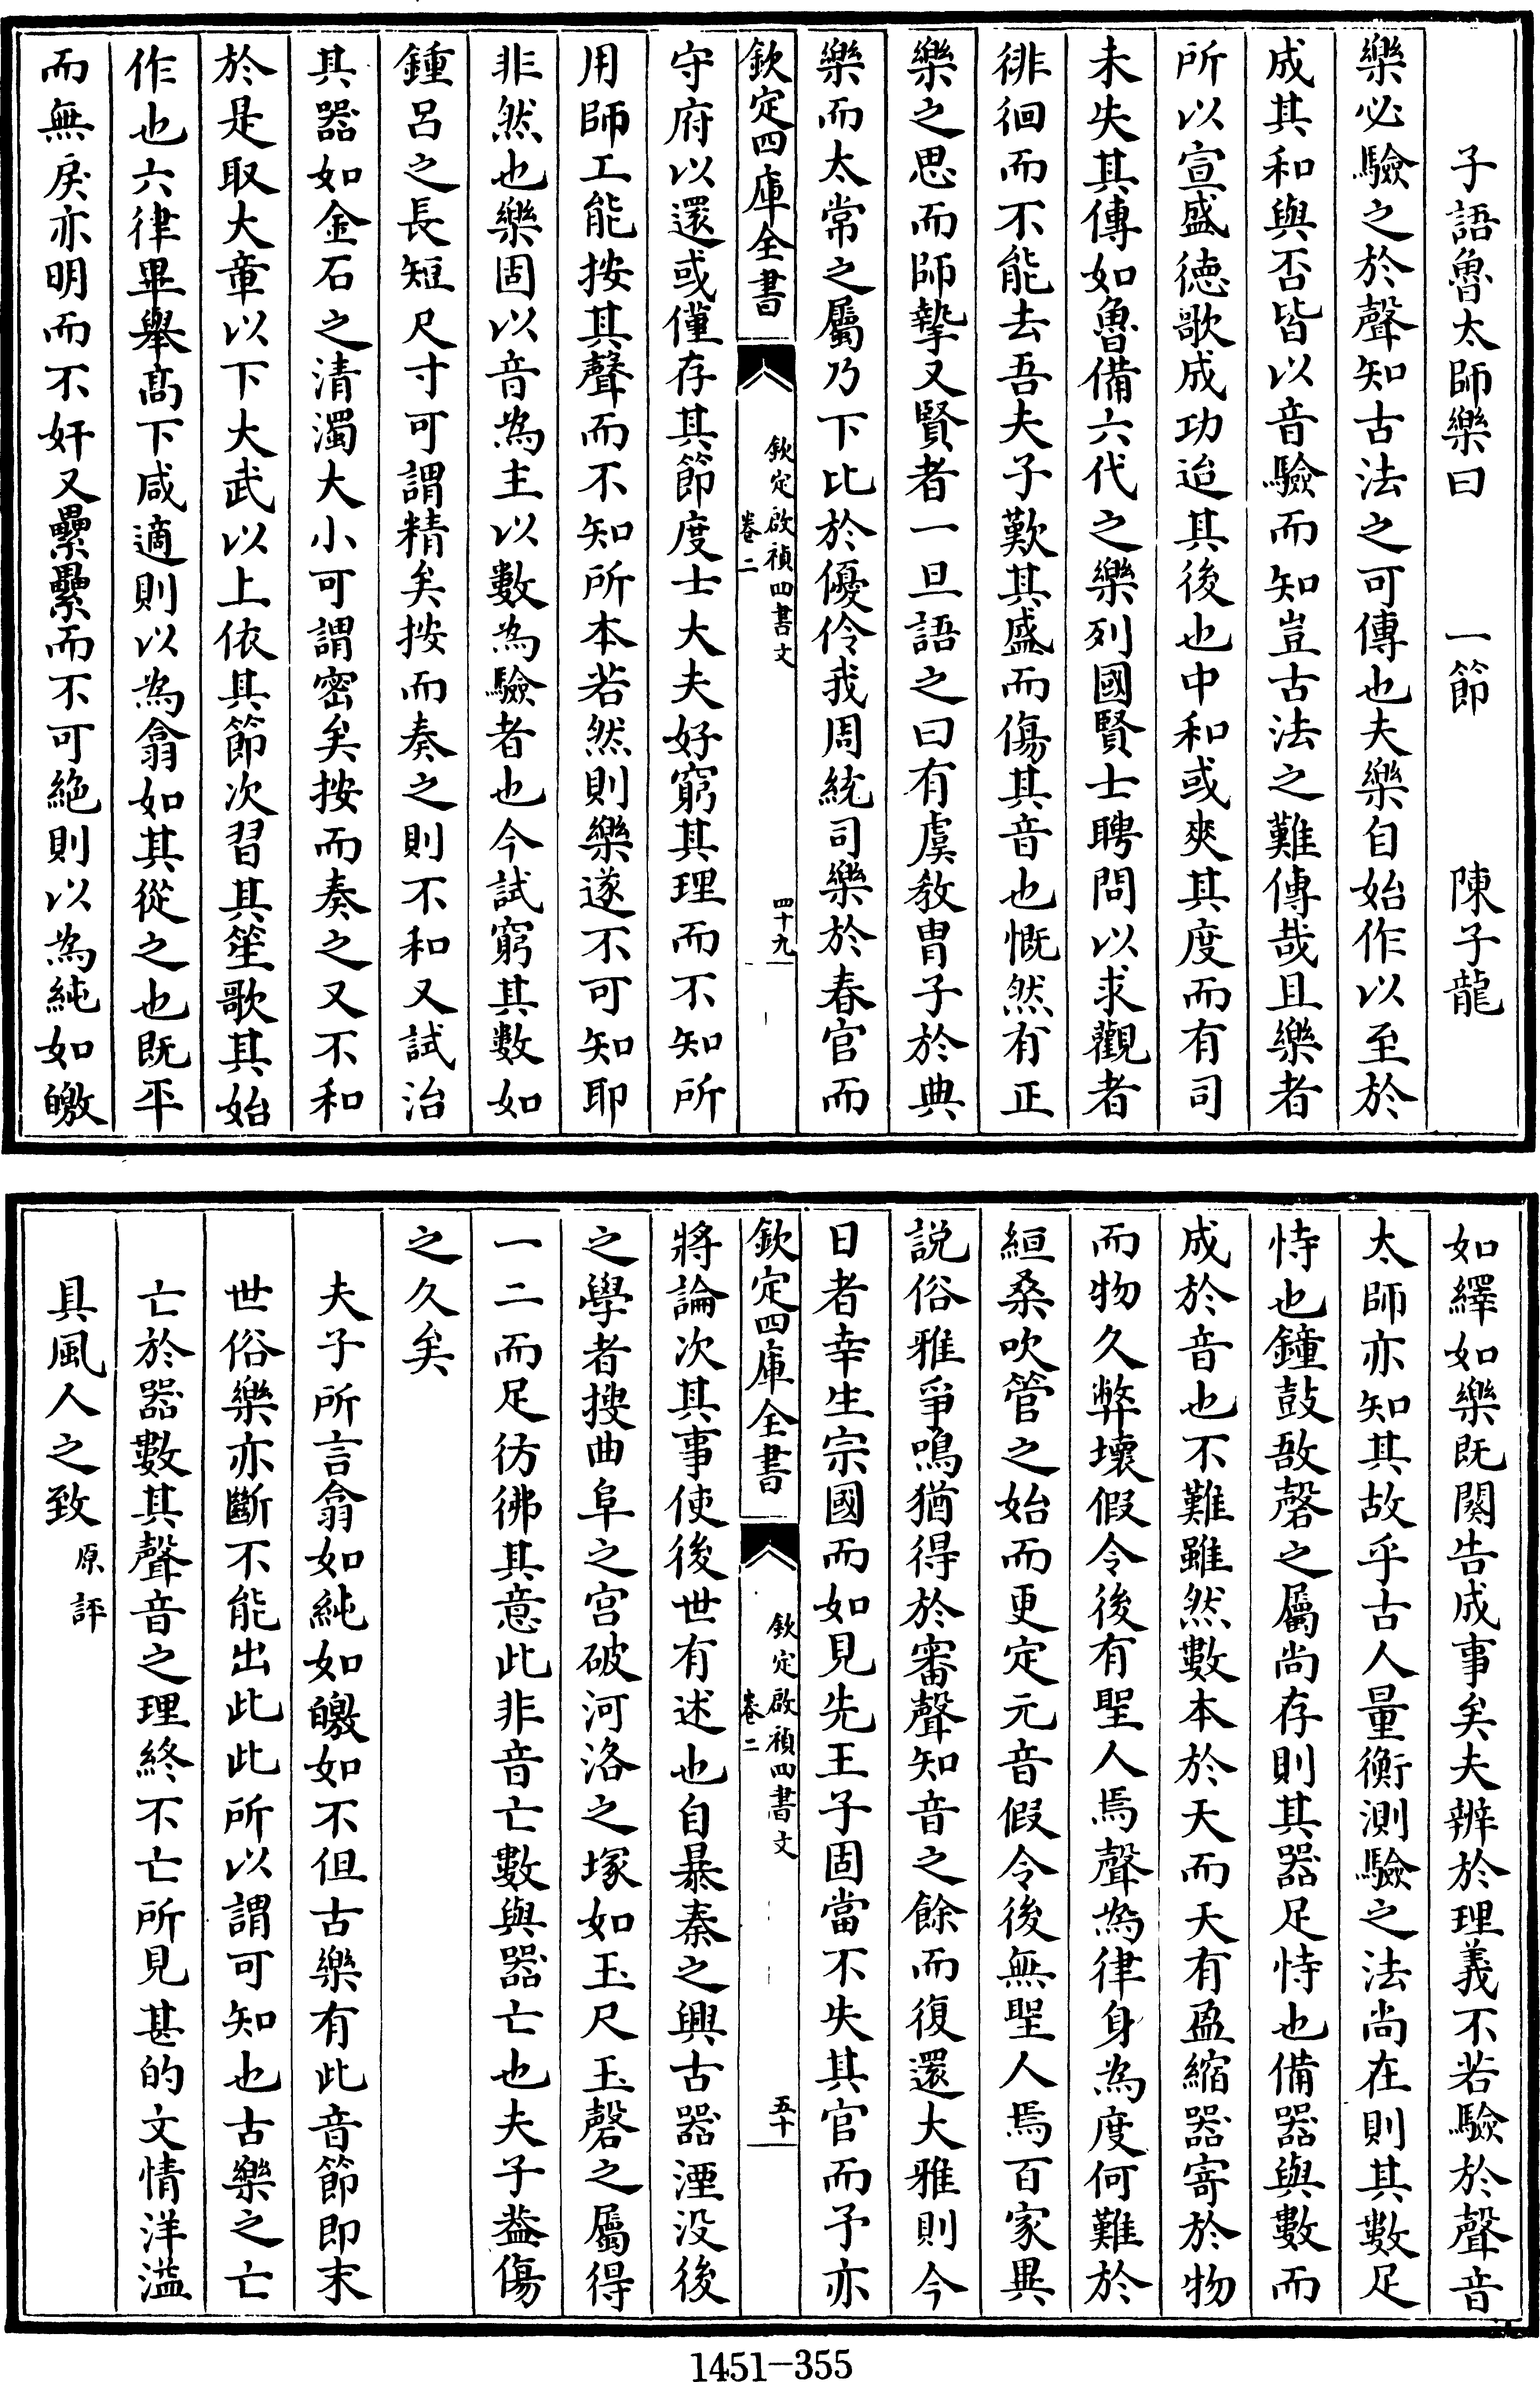 子語魯太師樂曰　一節　陳子龍
樂必驗之於聲知古法之可傳也夫樂自始作以至於
成其和與否皆以音驗而知豈古法之難傳哉且樂者
所以宣盛德歌成功迨其後也中和或爽其度而有司
未失其傳如魯備六代之樂列國賢士聘問以求觀者
徘徊而不能去吾夫子歎其盛而傷其音也慨然有正
樂之思而師摯又賢者一旦語之曰有虞教胄子於典
樂而太常之屬乃下比於優伶我周統司樂於春官而
欽定四庫全書
欽定啟禎四書文
卷二
四十九
守府以還或僅存其節度士大夫好窮其理而不知所
用師工能按其聲而不知所本若然則樂遂不可知耶
非然也樂固以音為主以數為驗者也今試窮其數如
鍾呂之長短尺寸可謂精矣按而奏之則不和又試治
其器如金石之清濁大小可謂密矣按而奏之又不和
於是取大章以下大武以上依其節次習其笙歌其始
作也六律畢舉高下咸適則以為翕如其從之也既平
而無戾亦明而不奸又纍纍而不可絕則以為純如皦
如繹如樂既闋告成事矣夫辨於理義不若驗於聲音
太師亦知其故乎古人量衡測驗之法尚在則其數足
恃也鐘鼓敔磬之屬尚存則其器足恃也備器與數而
成於音也不難雖然數本於天而天有盈縮器寄於物
而物久弊壞假令後有聖人焉聲為律身為度何難於
絙桑吹管之始而更定元音假令後無聖人焉百家異
說俗雅爭鳴猶得於審聲知音之餘而復還大雅則今
日者幸生宗國而如見先王子固當不失其官而予亦
欽定四庫全書
欽定啟禎四書文
卷二
五十
將論次其事使後世有述也自暴秦之興古器湮没後
之學者搜曲阜之宮破河洛之塚如玉尺玉磬之屬得
一二而足彷彿其意此非音亡數與器亡也夫子葢傷
之久矣
夫子所言翕如純如皦如不但古樂有此音節即末
世俗樂亦斷不能出此此所以謂可知也古樂之亡
亡於器數其聲音之理終不亡所見甚的文情洋溢
具風人之致原評
1451-355